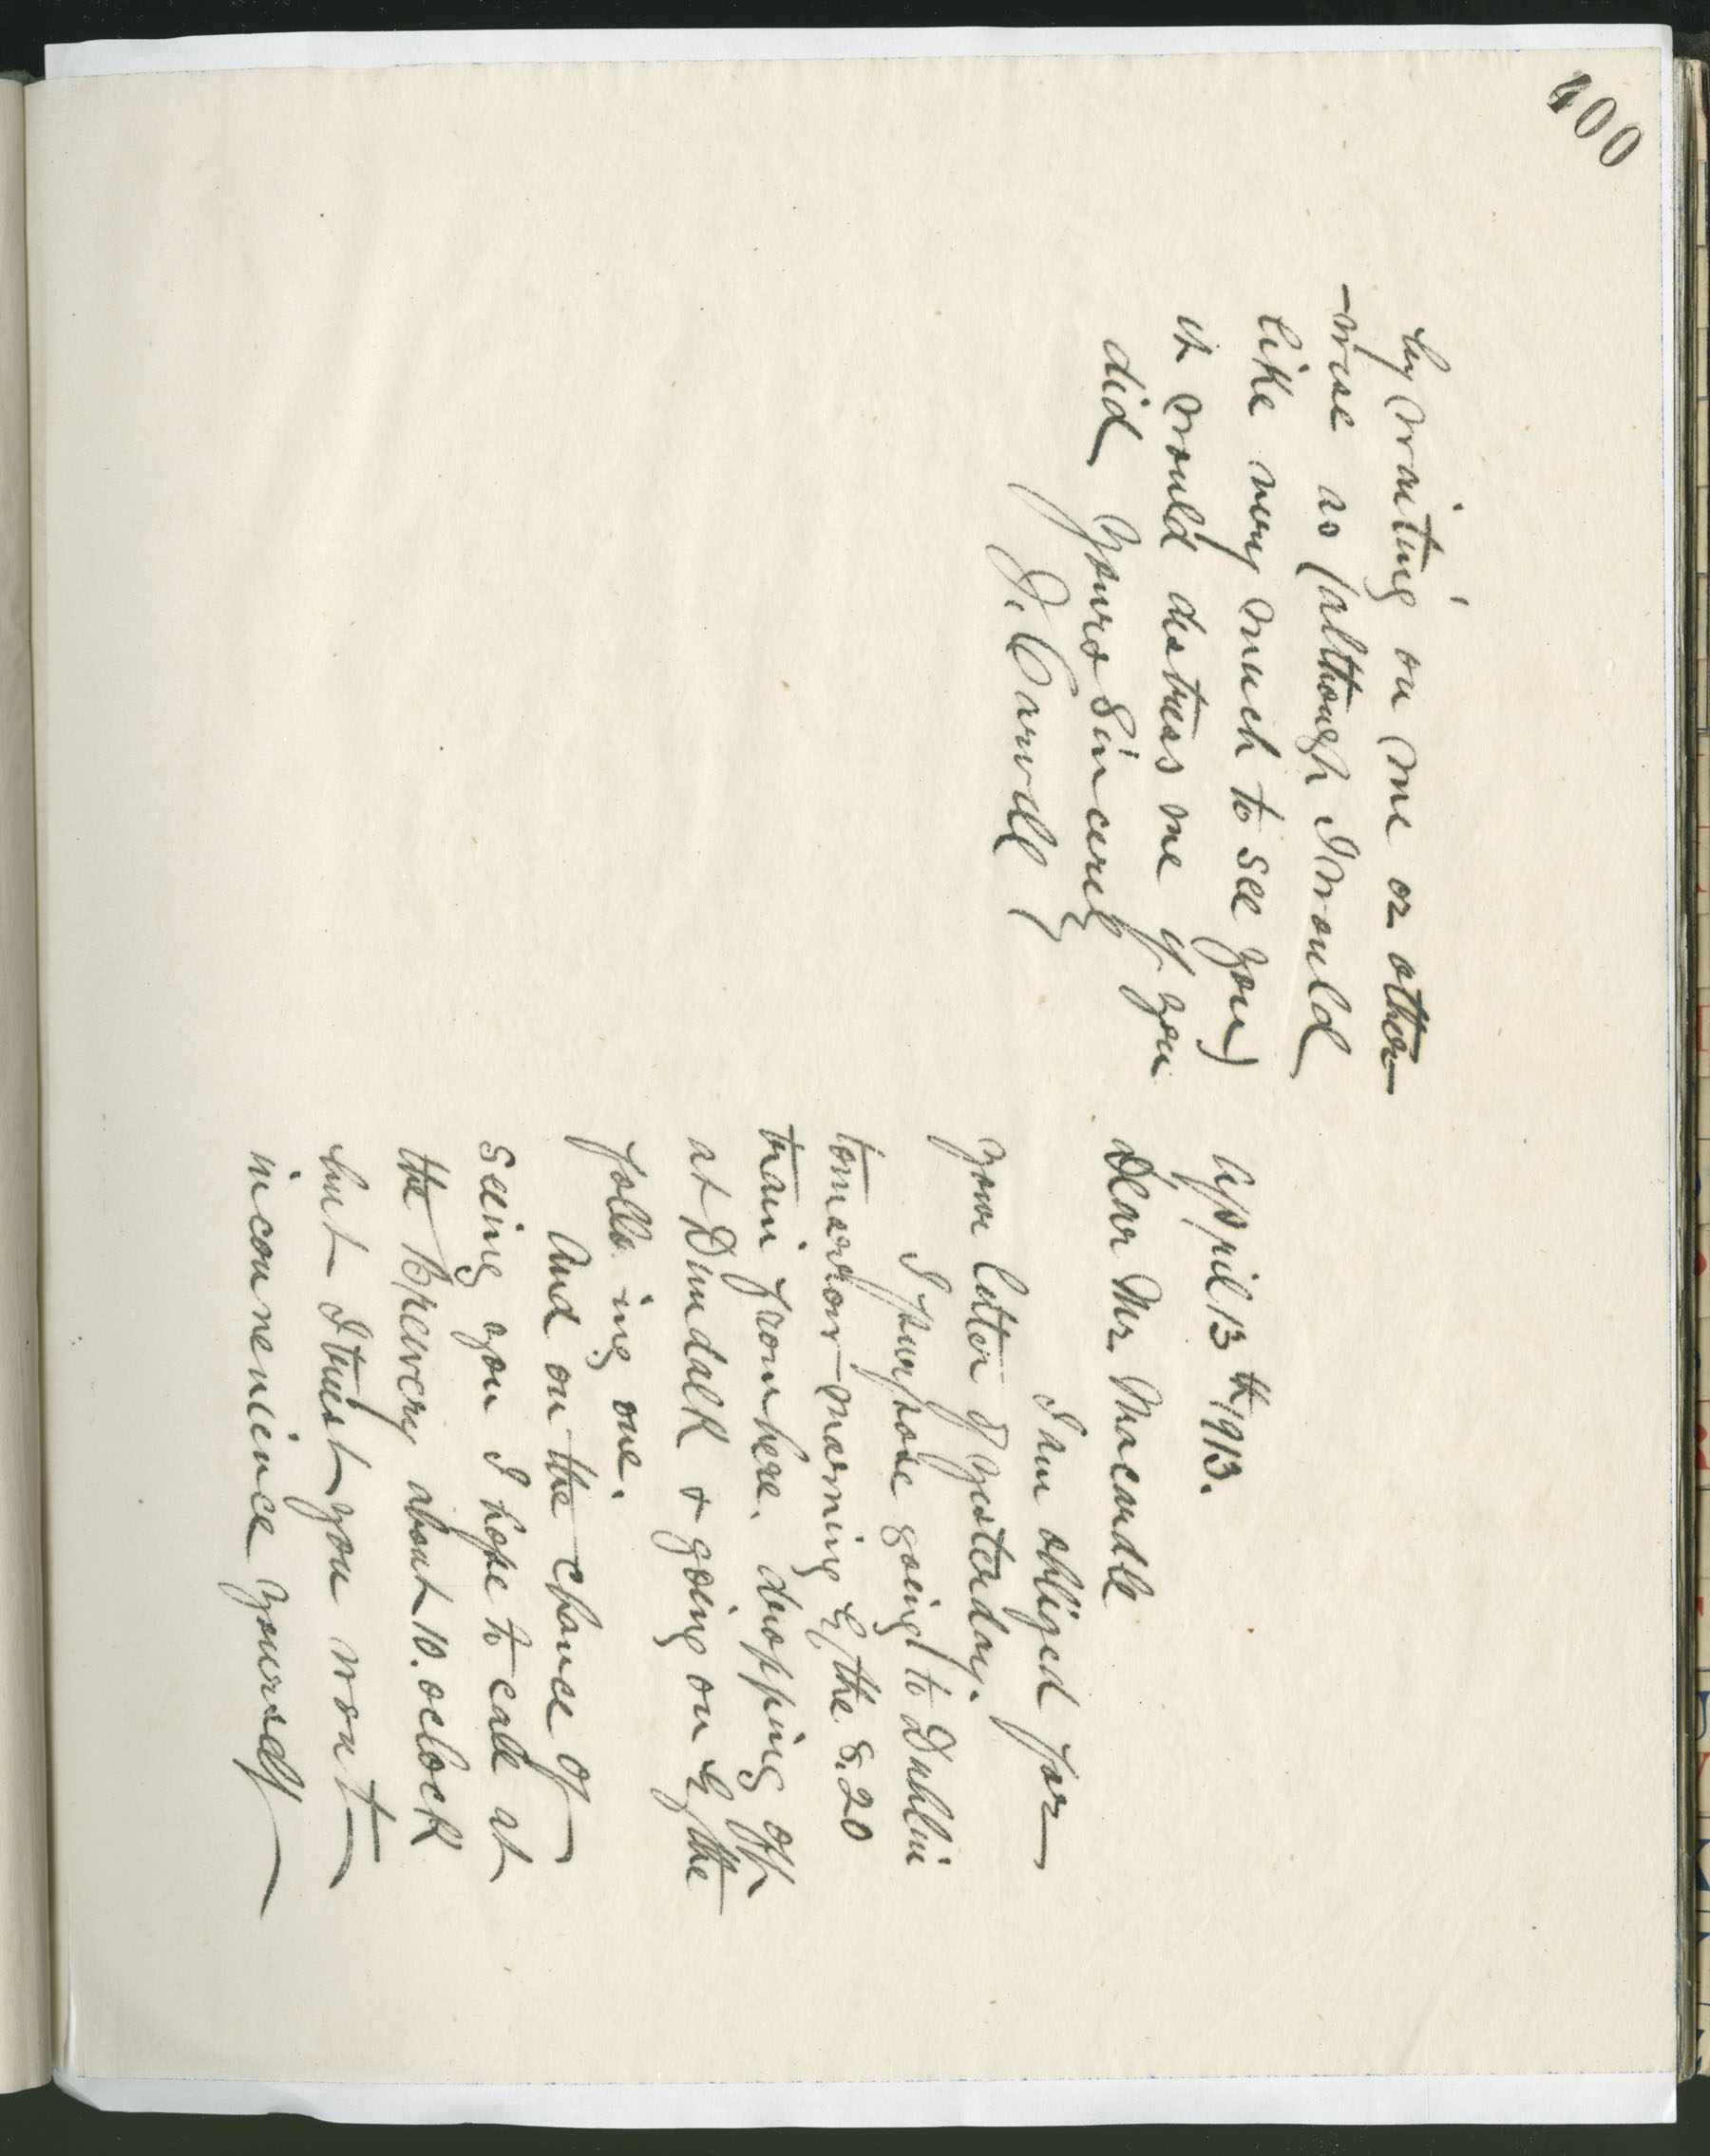 400
April 13th 1913.
Dear Mr. Macardle
I am obliged for
your letter of yesterday.
I purpose going to Dublin
tomorrow morning by the 8.20
train from here. dropping off
at Dundalk & going on by the
following one.
And on the chance of
seeing you I hope to call at
the Brewery about 10. oclock
but I trust you wont
inconvenience yourself
by waiting on me or other
-wise as (although I would
like very much to see you)
it would distress me if you
did Yours Sincerely
J. Carvill